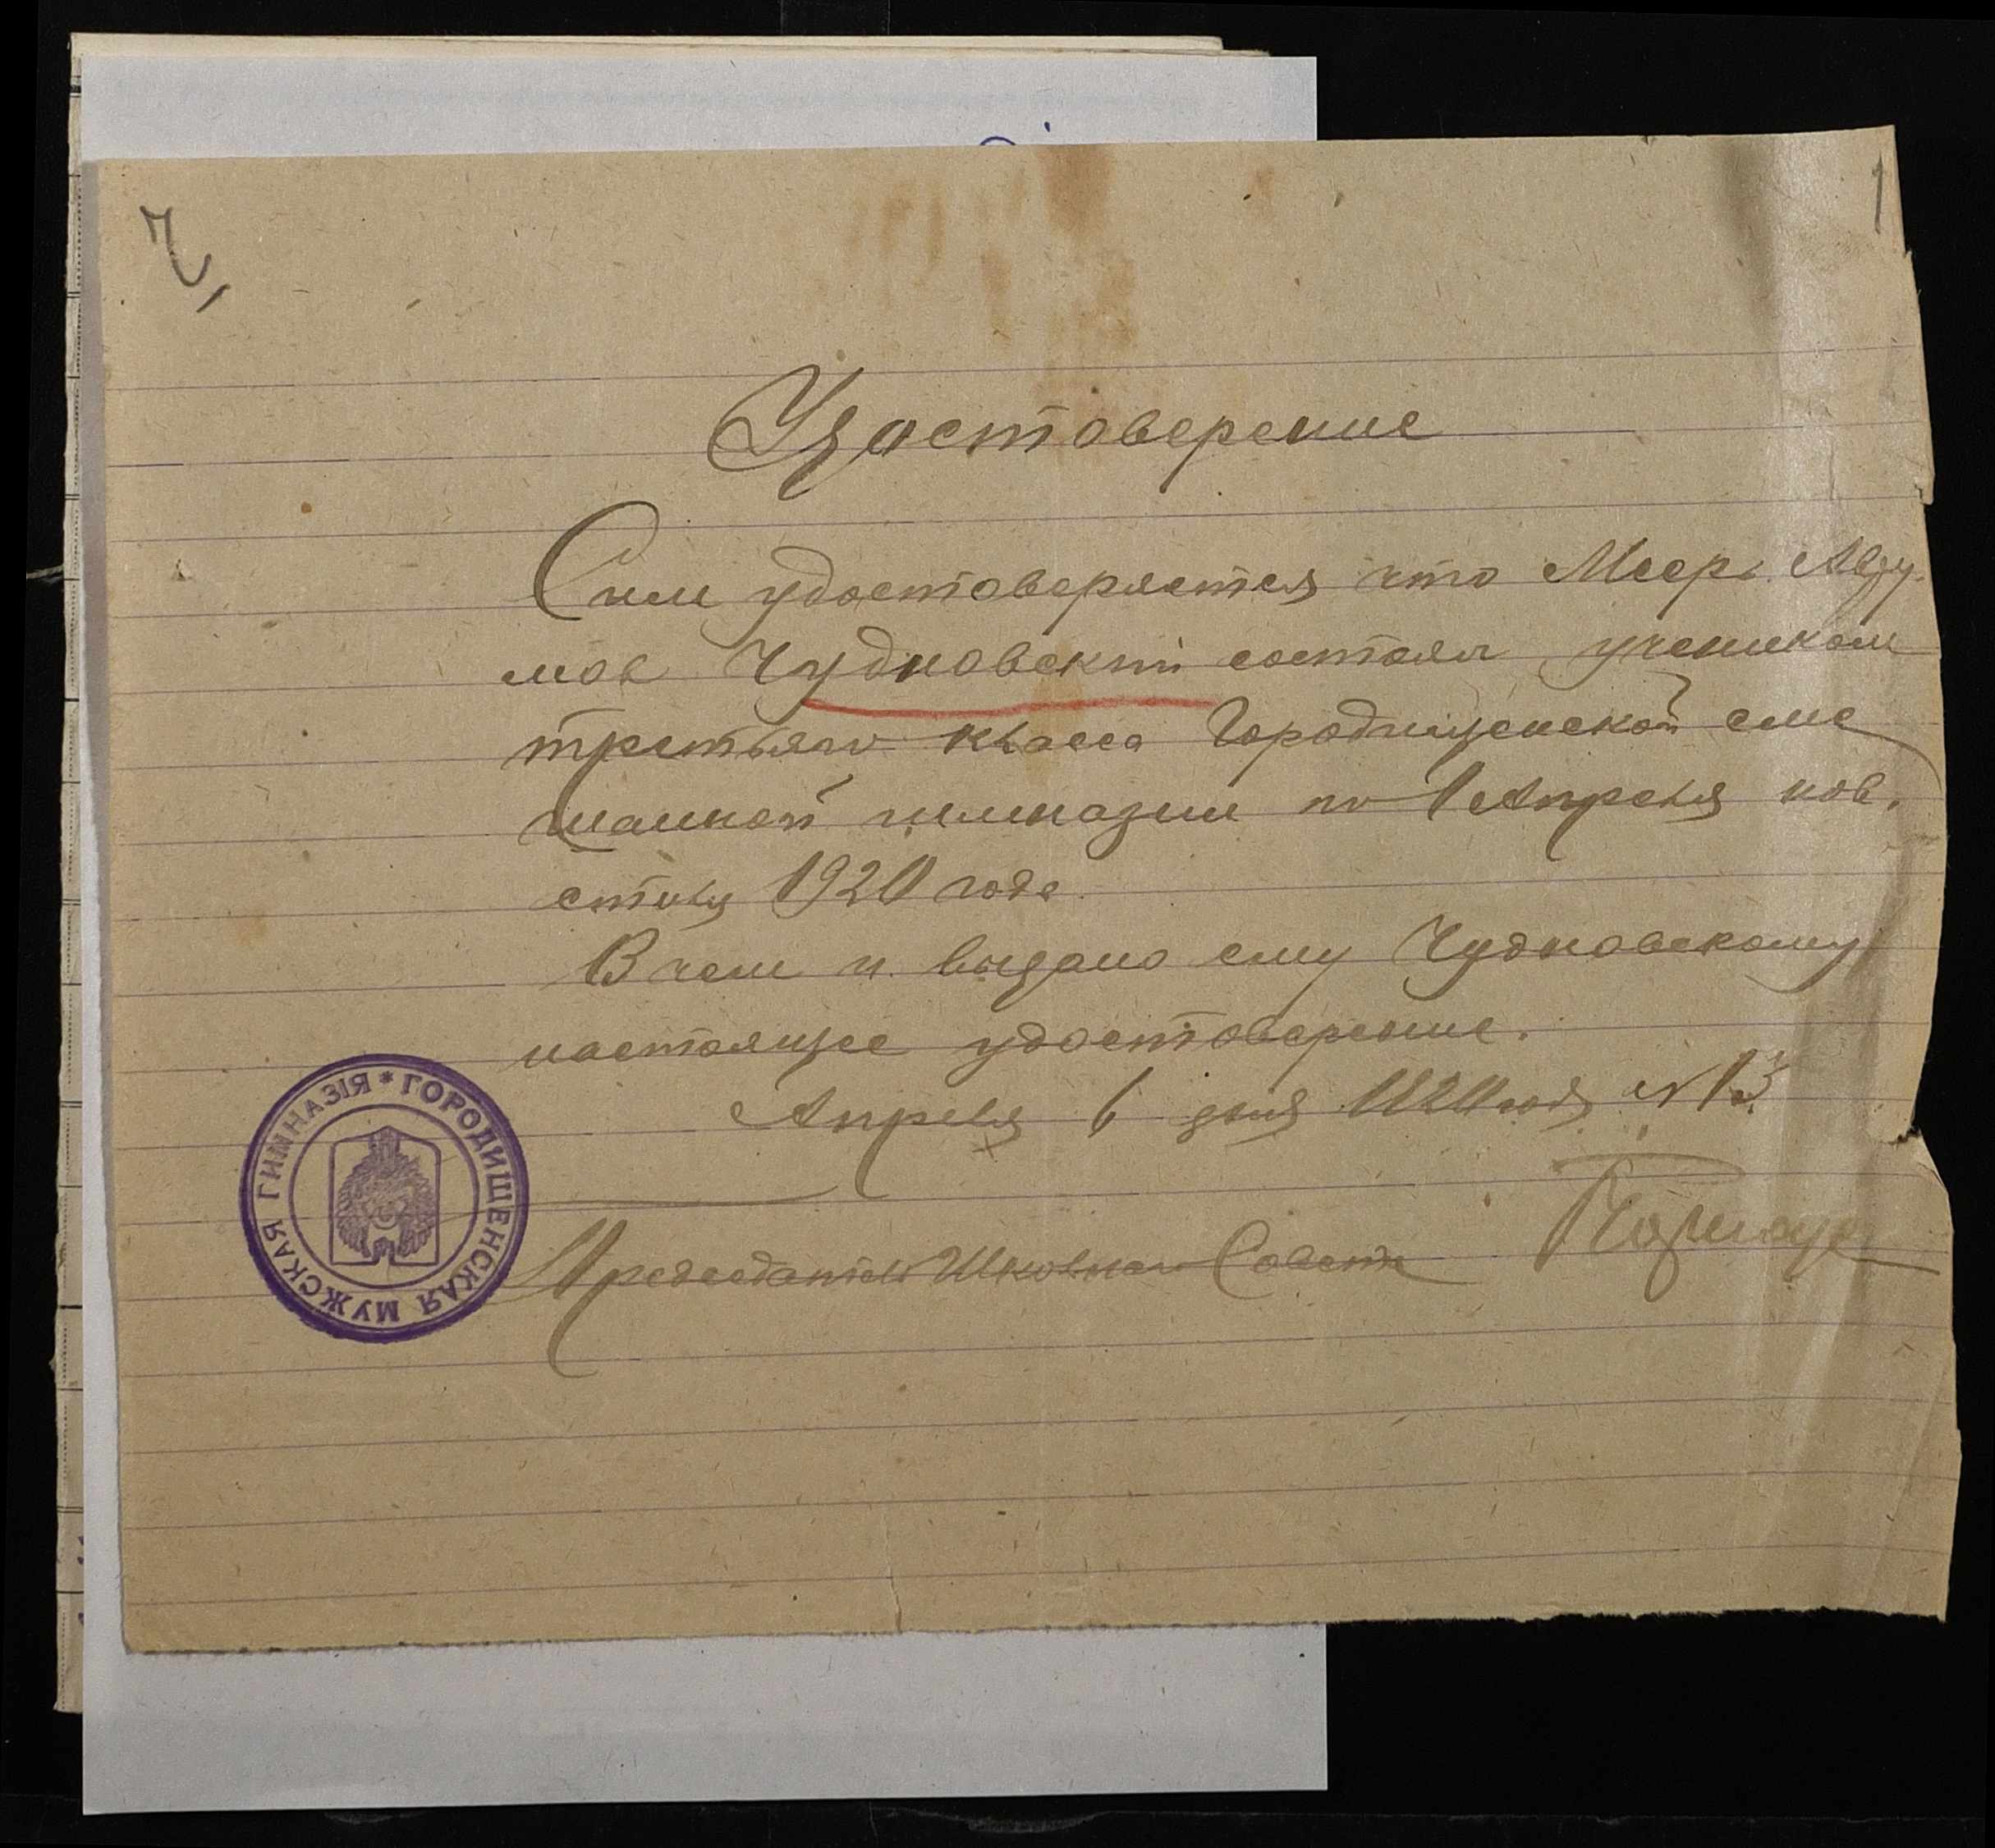 1
Удостоверение
Сим удостоверяется что Меер Авру-
мов Чудновский состоял учеником
третьяго класса Городищенской сме
шанной гимназии по 1 Апреля нов.
стиля 1920 года.
В чем и выдано ему Чудновскому
настоящее удостоверение.
Апреля 6 дня 1920 года №13
Председатель Школьнаго Совета
ГОРОДИЩЕНСКАЯ МУЖСКАЯ ГИМНАЗІЯ *